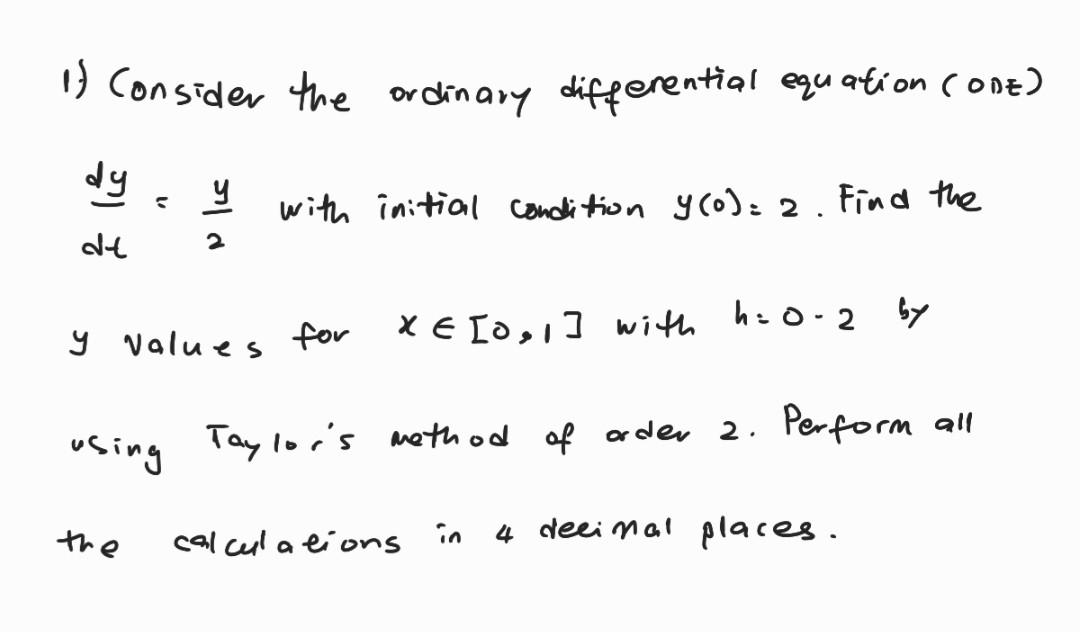 1) Consider the ordinary differential equation (ODE)
dy/dt = y/2 with initial condition y(0) = 2. Find the
y values for x ∈ [0,1] with h = 0.2 by
using Taylor's method of order 2. Perform all
the calculations in 4 decimal places.